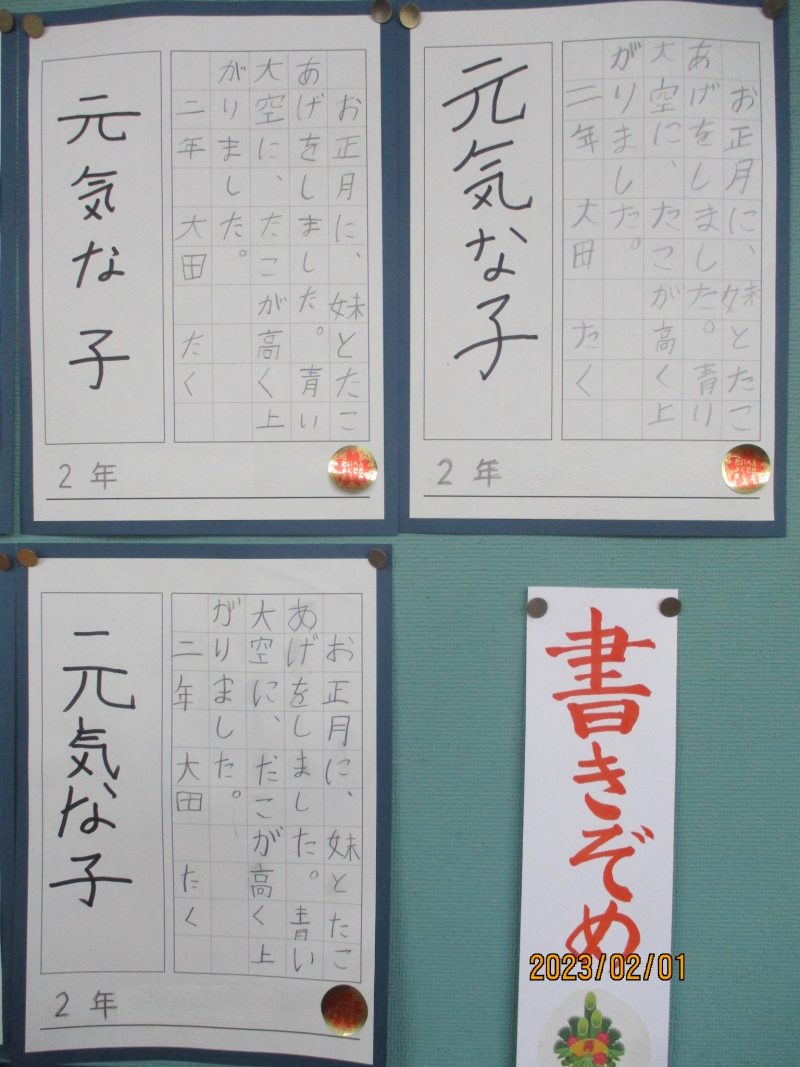 お正月に、妹とたこ
あげをしました。青い
大空に、たこが高く上
がりました。
二年 大田 たく
元気な子
2年
たいへん
よくでき
ました
お正月に、妹とたこ
あげをしました。青い
大空に、たこが高く上
がりました。
二年 大田 たく
元気な子
2年
たいへん
よくでき
ました
お正月に、妹とたこ
あげをしました。青い
大空に、たこが高く上
がりました。
二年 大田 たく
元気な子
2年
書きぞめ
2023/02/01